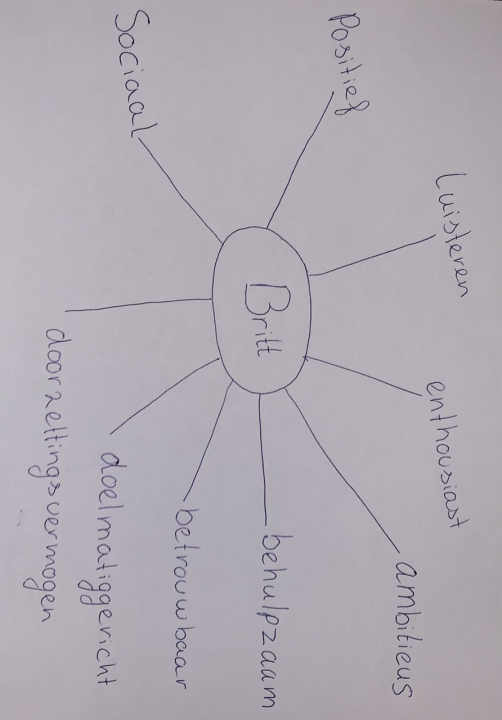 Positief
Luisteren
enthousiast
ambitieus
behulpzaam
betrouwbaar
doelmatiggericht
doorzettingsvermogen
Sociaal
Britt